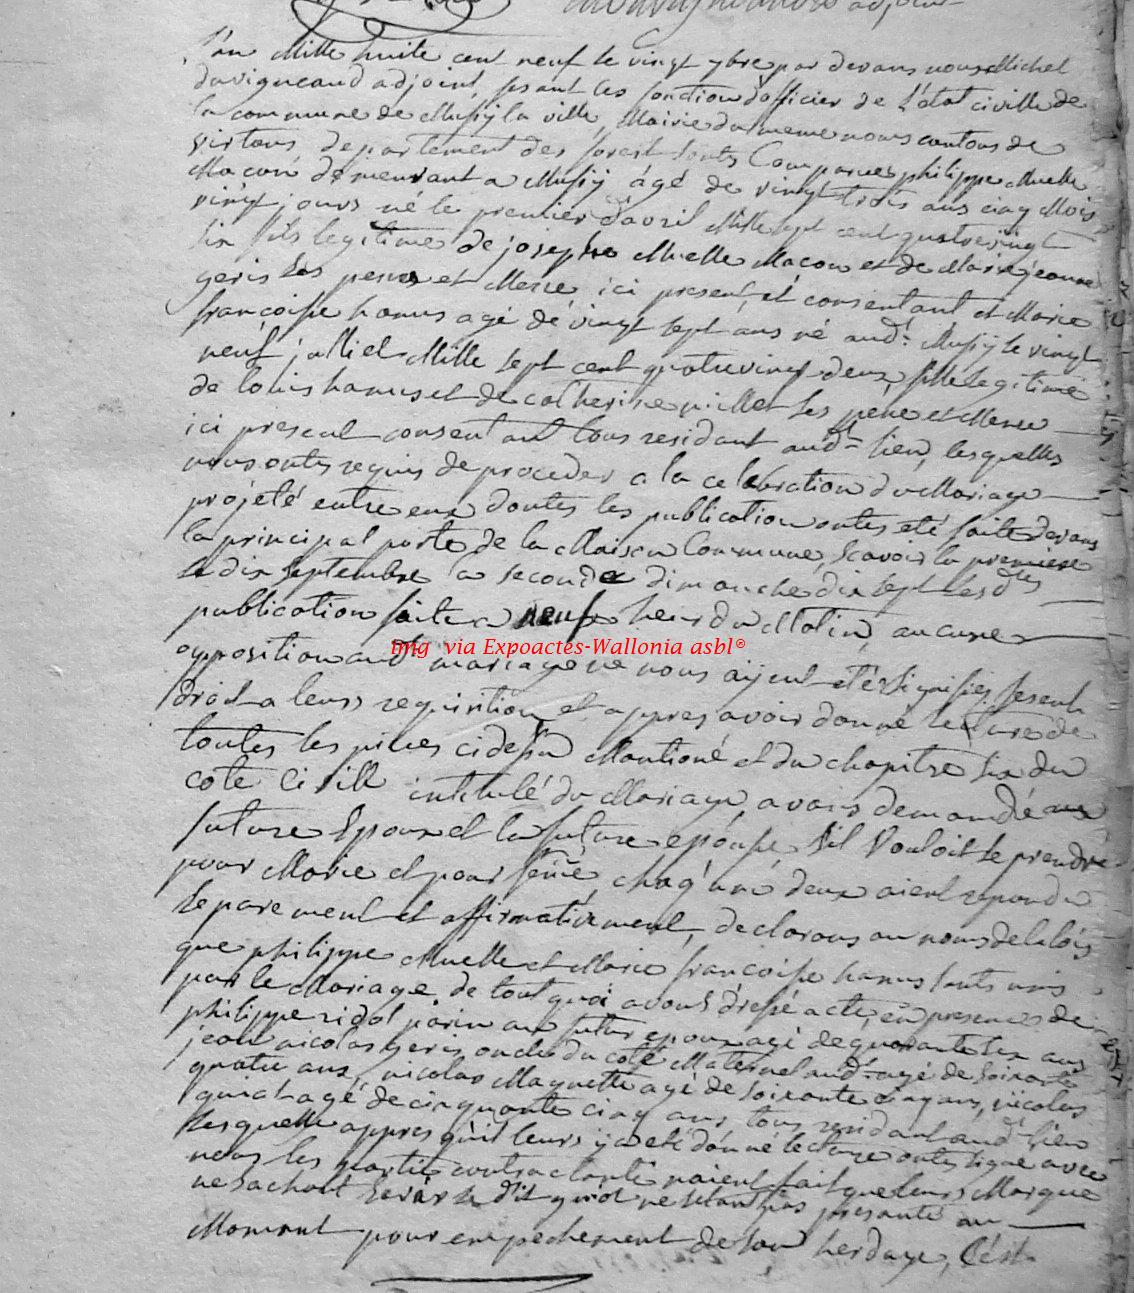 adjoint
L'an Mille huite cent neuf le vingt 7bre par devans nous Michel
Duvigneaud adjoint fesant les fonction dofficier de L'état civille de
la commune de Mussÿ la ville, Mairie du meme nom contons de
virtons departement des forest sonts Comparues philippe Muelle
Maçon demeurant a Mussÿ âgé de vingt trois ans cinq Mois
vingt jours né le premier d'avril Mille sept cent quatrevingt
six fils legitime de josephe Muelle Macon et de Marie jeanne
geris Ses peres et Mere ici present et consentant et Marie
françoisse hanus agé de vingt sept ans né aud.t Mussÿ le vingt
neuf julliet Mille sept cent quatrevingt deux, fille legitime
de louis hanus et de catherine pillet Ses pere et Mere
ici present consentant tous residant aud.t lieu, lesquelles
nous ontes requis de proceder a la celebration du Mariage
projeté entre eux dontes les publication ontes eté faite devans
la principal porte de la Maison Commune, Scavoir la premiere
le dix septembre la seconde dimanche dix sept lesd.tes
publication faite a neufe heur du Matin, aucune
opposition aud.t mariage ne nous aÿent été Signifiez fesent
droit a leurs requisition et appres avoir donné lecture de
toutes les pieces cidessu Mantioné et du chapitre six du
cote Civille intitulé du Mariage, avons demandé aux
future Epoux et la future epousse Sil Vouloit se prendre
pour Marie et pour femme, chaq'une deux aient repondu
Separement et affirmativement, declarons au nom de la loix
que philippe Muelle et Marie francoisse hanus sonts unis
par le Mariage, de tout quoi avons dressé acte, en presences de
philippe ridol parin au futur epoux agé de quarante six ans
jean nicolas geris oncle du coté Maternel aud.t agé de Soixante
quatre ans, nicolas Maquette agé de Soixante cinq ans, nicolas
quiot agé de cinquante cinq ans, tous residant aud.t lieu
Lesquelle appres qu'il leurs ÿ a eté donné lecture ontes signé avec
nous les partie contractante naient fait que leurs Marque
ne Sachant Ecrire led.it quiot ne setant pas presanté au
Momant pour empechement de son herdage,
img via Expoactes-Wallonia asbl®